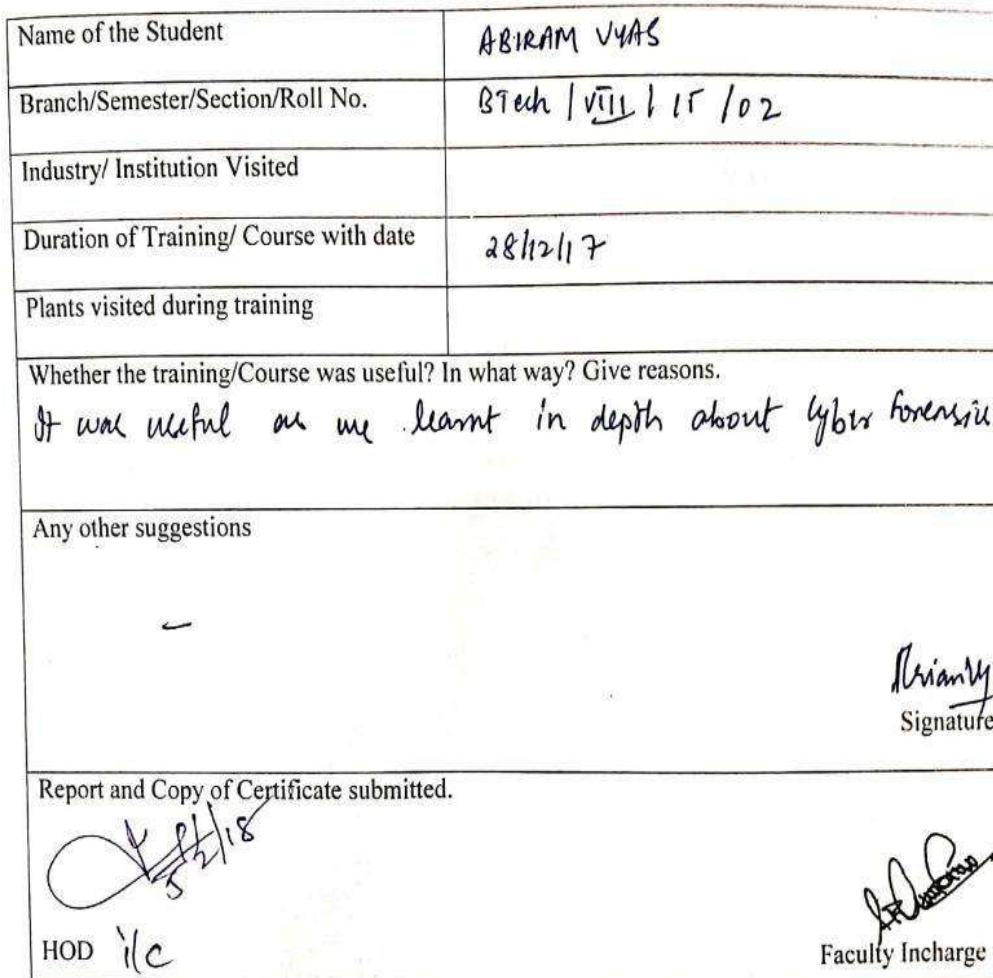 Name of the Student ABIRAM VYAS
Branch/Semester/Section/Roll No. BTech / VIII / IT / 02
Industry/ Institution Visited
Duration of Training/ Course with date 28/12/17
Plants visited during training
Whether the training/Course was useful? In what way? Give reasons.
It was useful as we learnt in depth about Cyber Forensic
Any other suggestions
-
Signature
Report and Copy of Certificate submitted.
5/2/18
HOD i/c Faculty Incharge